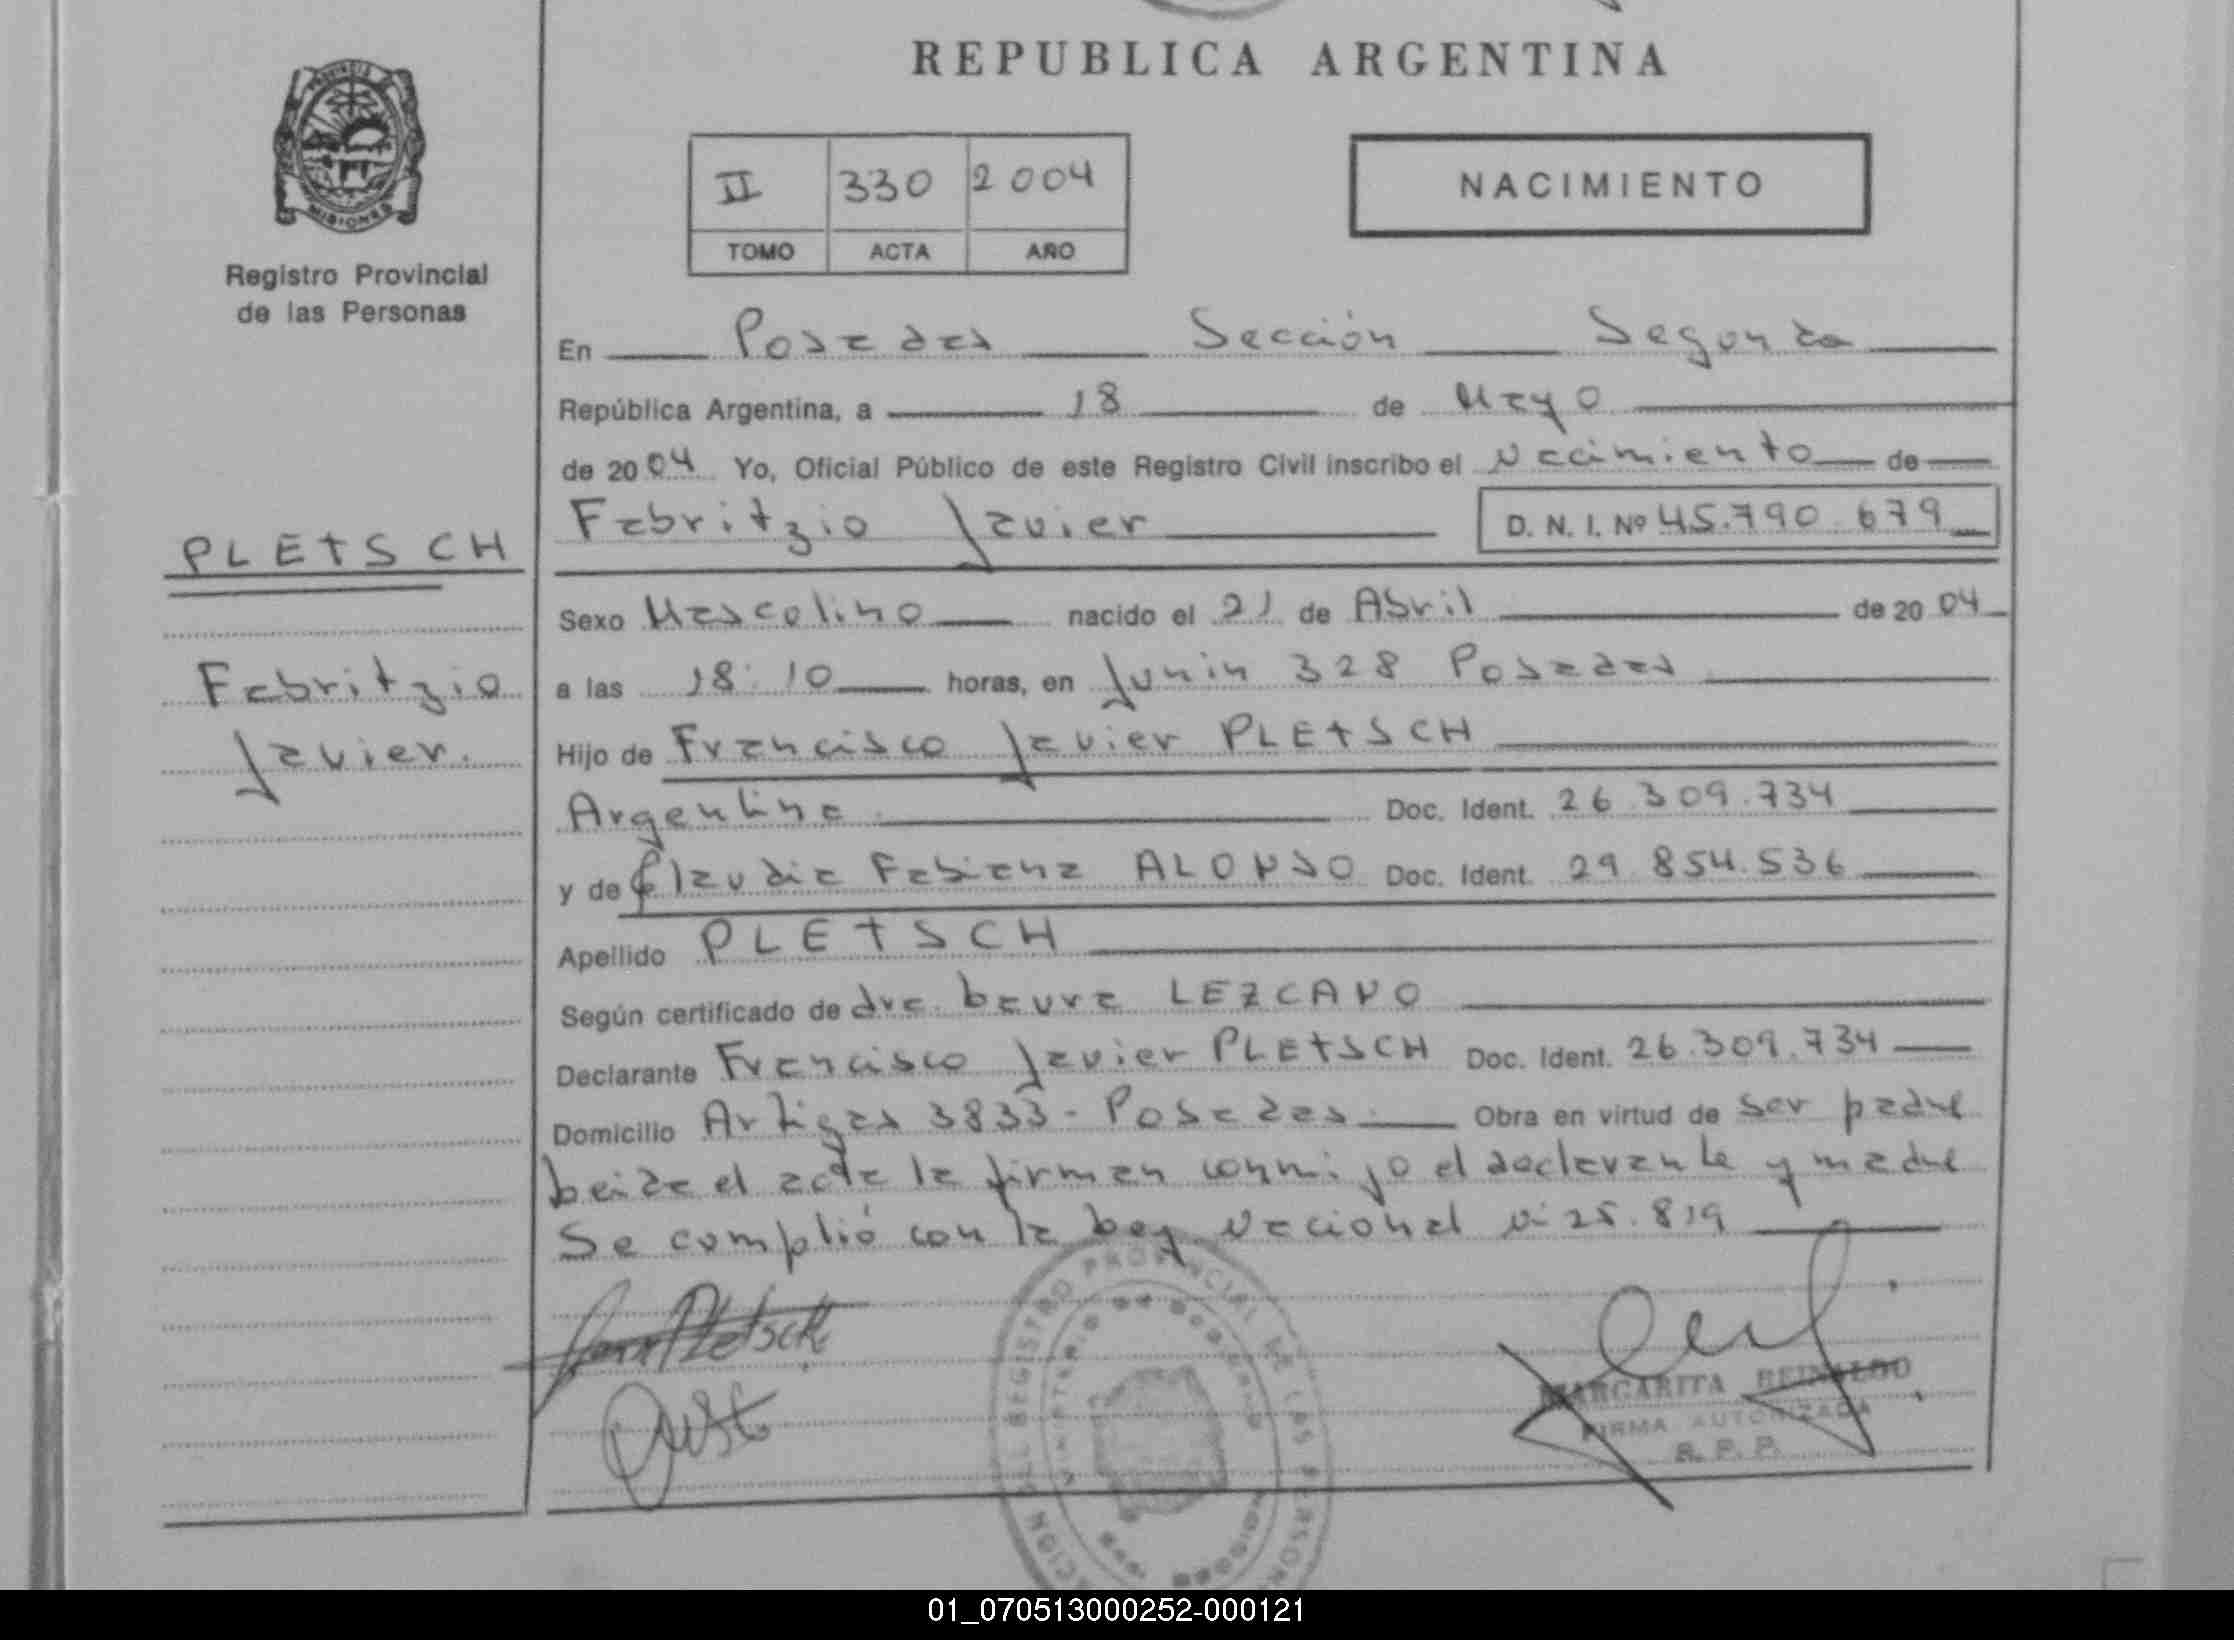 REPUBLICA ARGENTINA
PROVINCIA
MISIONES
Registro Provincial
de las Personas
II 330 2004
TOMO ACTA AÑO
NACIMIENTO
En Posadas Sección Segunda
República Argentina, a 18 de Mayo
de 2004 Yo, Oficial Público de este Registro Civil inscribo el Nacimiento de
Fabritzio Javier D. N. I. Nº 45.790.679
PLETSCH
Fabritzio
Javier.
Sexo Masculino nacido el 21 de Abril de 2004
a las 18:10 horas, en Junin 328 Posadas
Hijo de Francisco Javier PLETSCH
Argentina Doc. Ident. 26.309.734
y de Claudia Fabiana ALONSO Doc. Ident. 29.854.536
Apellido PLETSCH
Según certificado de dra. Laura LEZCANO
Declarante Francisco Javier PLETSCH Doc. Ident. 26.309.734
Domicilio Artigas 3833 - Posadas. Obra en virtud de ser padre
Leida el acta la firman conmigo el declarante y madre
Se complió con la Ley Nacional nº 25.819
Pletsch
REGISTRO PROVINCIAL DE LAS PERSONAS
MINISTERIO DE GOBIERNO
MISIONES
MARGARITA REINALDO
FIRMA AUTORIZADA
R. P. P.
01_070513000252-000121